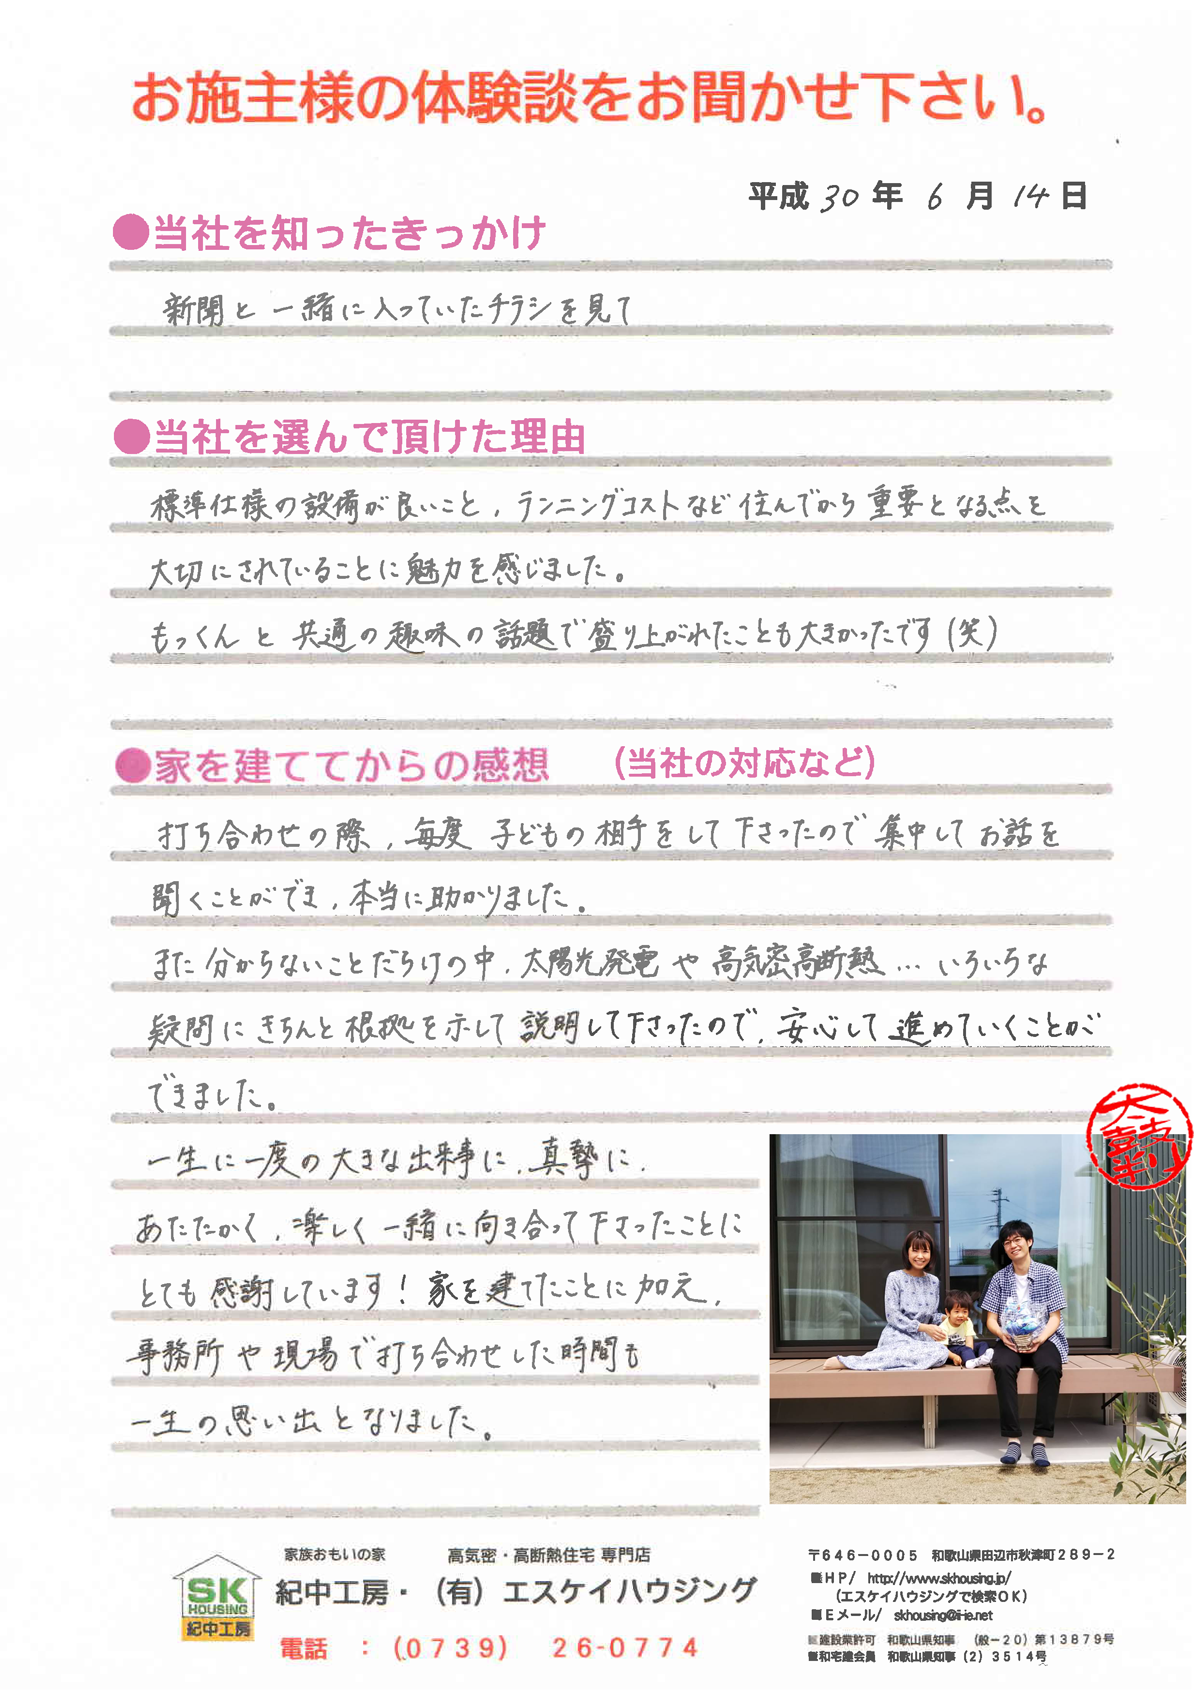 お施主様の体験談をお聞かせ下さい。
平成 30 年 6 月 14 日
●当社を知ったきっかけ
新聞と一緒に入っていたチラシを見て
●当社を選んで頂けた理由
標準仕様の設備が良いこと、ランニングコストなど住んでから重要となる点を
大切にされていることに魅力を感じました。
もっくんと共通の趣味の話題で盛り上がれたことも大きかったです(笑)
●家を建ててからの感想 (当社の対応など)
打ち合わせの際、毎度子どもの相手をして下さったので集中してお話を
聞くことができ、本当に助かりました。
また分からないことだらけの中、太陽光発電や高気密高断熱…いろいろな
疑問にきちんと根拠を示して説明して下さったので、安心して進めていくことが
できました。
一生に一度の大きな出来事に、真摯に、
あたたかく、楽しく一緒に向き合って下さったことに
とても感謝しています!家を建てたことに加え、
事務所や現場で打ち合わせした時間も
一生の思い出となりました。
家族おもいの家 高気密・高断熱住宅 専門店
SK
HOUSING
紀中工房
紀中工房・(有)エスケイハウジング
電話 :(0739) 26-0774
〒646-0005 和歌山県田辺市秋津町289-2
■HP/ http://www.skhousing.jp/
(エスケイハウジングで検索OK)
■Eメール/ skhousing@i-ie.net
■建設業許可 和歌山県知事 (般-20)第13879号
■和宅建会員 和歌山県知事(2)3514号